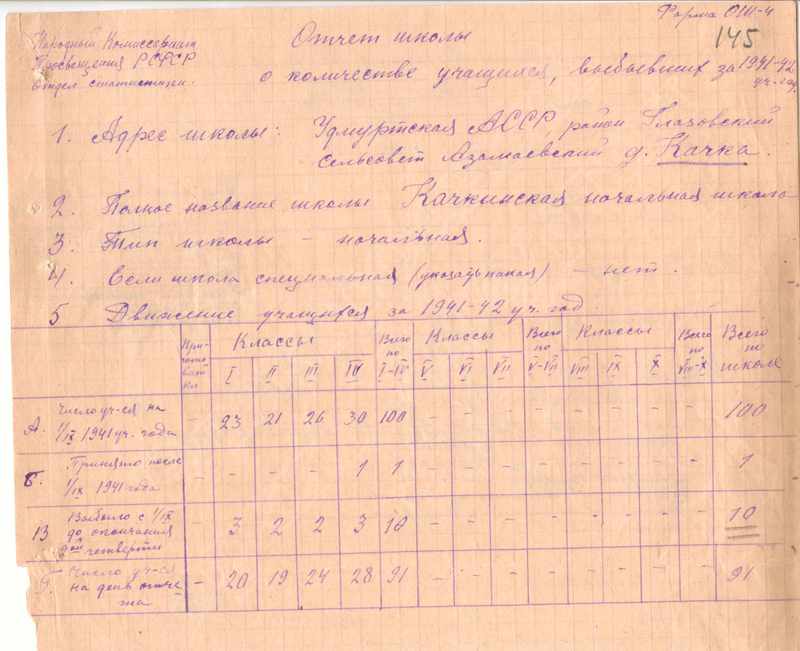 Форма ОШ-4
145
Народный Комиссариат
Просвещения РСФСР
отдел статистики.
Отчет школы
о количестве учащихся, выбывших за 1941-42
уч. год.
1. Адрес школы: Удмуртская АССР, район Глазовский
сельсовет Азамаевский д. Качка.
2. Полное название школы Качкинская начальная школа
3. Тип школы – начальная.
4. Если школа специальная (указать какая) – нет.
5 Движение учащихся за 1941-42 уч. год.
Классы Всего по I-IV Классы Всего по V-VII Классы Всего по VIII-X Всего по школе
I II III IV V VI VII VIII IX X
А. Число уч-ся на 1/IX 1941 уч. года - 23 21 26 30 100 - - - - - - - - 100
Б. Принято после 1/IX 1941 года - - - - 1 1 - - - - - - - - 1
В Выбыло с 1/IX до окончания четверти - 3 2 2 3 10 - - - - - - - - 10
Число уч-ся на день отчета - 20 19 24 28 91 - - - - - - - - 91